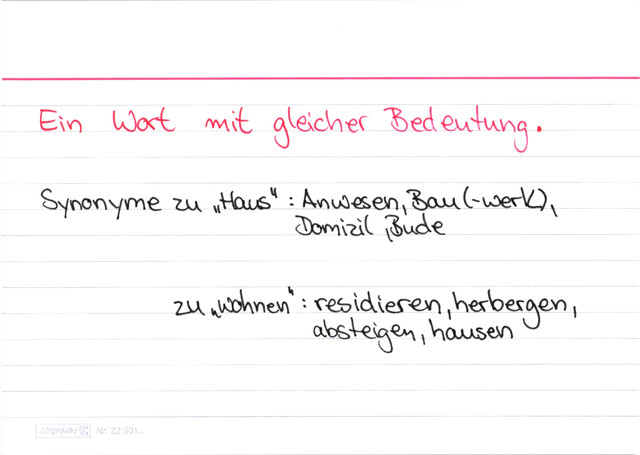 Ein Wort mit gleicher Bedeutung.
Synonyme zu „Haus“: Anwesen, Bau(-werk),
Domizil, Bude
zu „wohnen“: residieren, herbergen,
absteigen, hausen
Nr. 22 601..